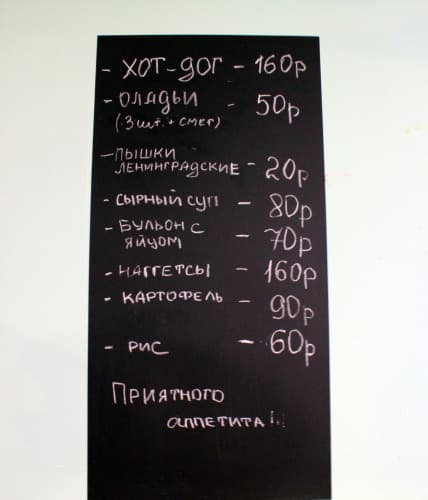 - ХОТ-ДОГ - 160р
- ОЛАДЬИ - 50р
(3 шт. + смет)
- ПЫШКИ
ЛЕНИНГРАДСКИЕ - 20р
- СЫРНЫЙ СУП - 80р
- БУЛЬОН С
ЯЙЦОМ - 70р
- НАГГЕТСЫ - 160р
- КАРТОФЕЛЬ - 90р
- РИС - 60р
ПРИЯТНОГО
АППЕТИТА!!!